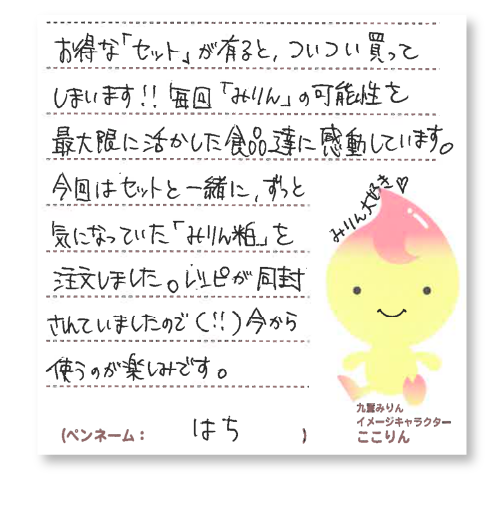 お得な「セット」が有ると、ついつい買って
しまいます!!毎回「みりん」の可能性を
最大限に活かした食品達に感動しています。
今回はセットと一緒に、ずっと
気になっていた「みりん粕」を
注文しました。レシピが同封
されていましたので(!!)今から
使うのが楽しみです。
みりん大好き♡
九重みりん
イメージキャラクター
ここりん
(ペンネーム: はち )